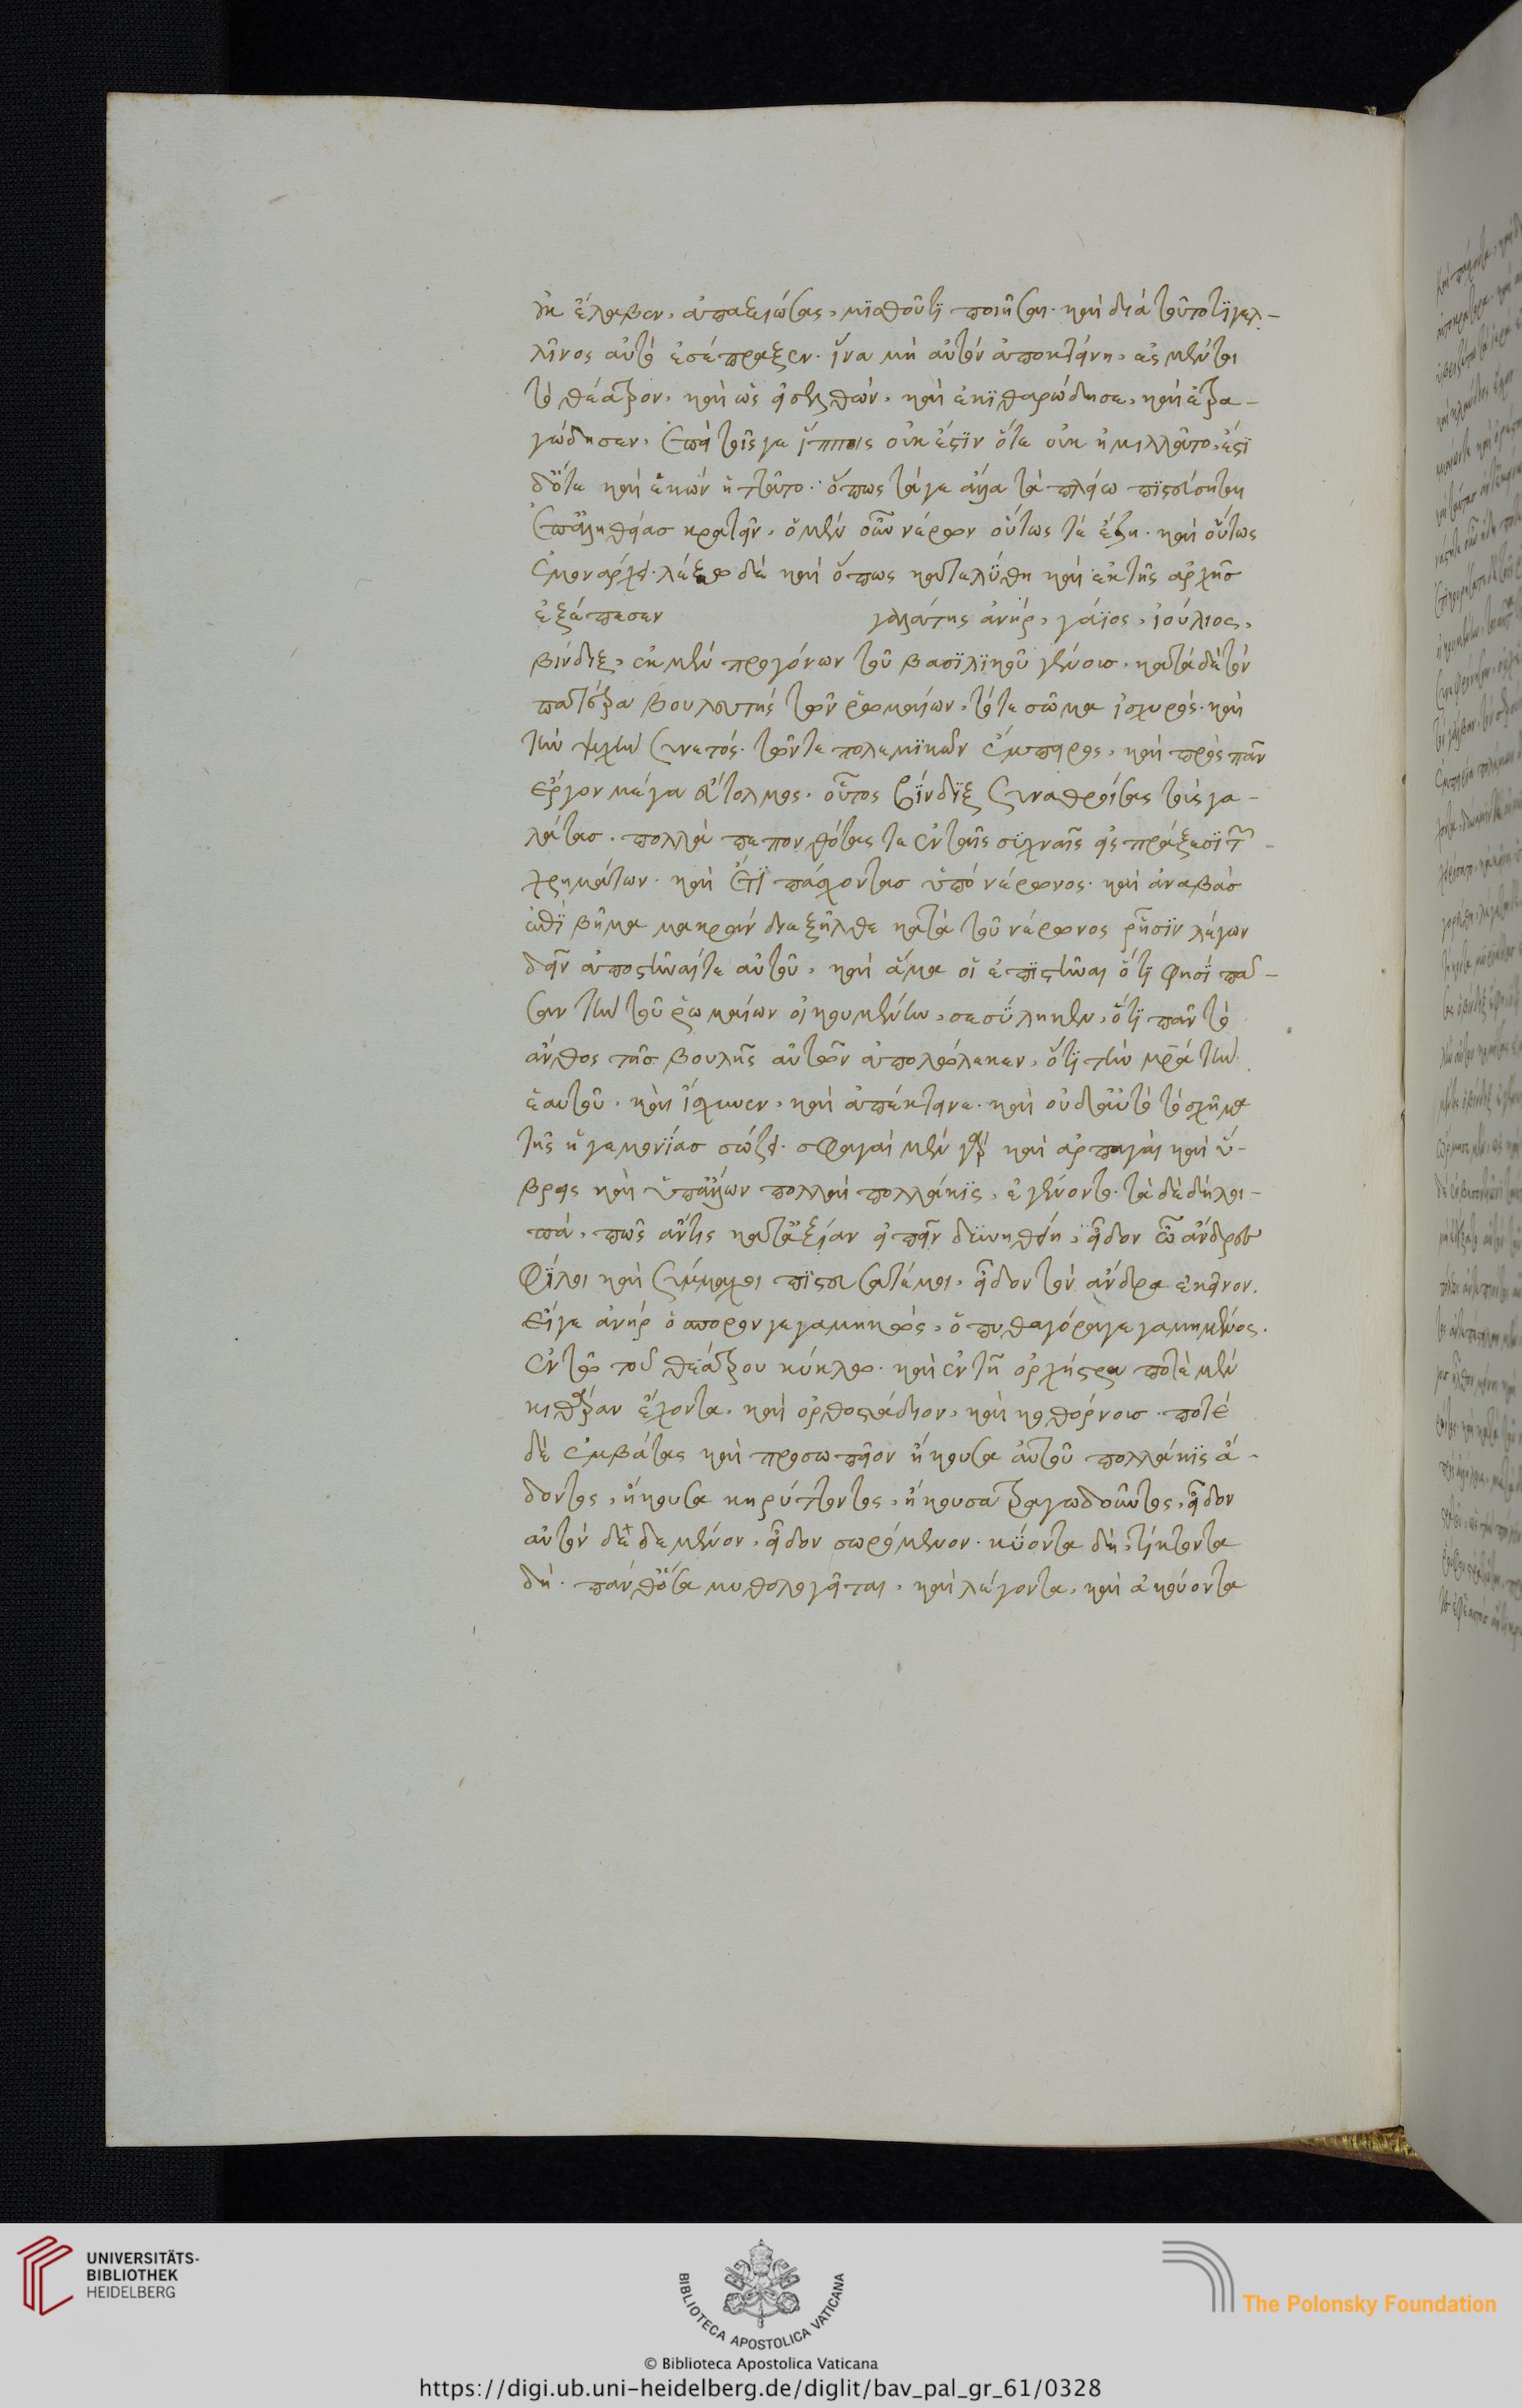 οὐκ ἔλαβεν, ἀπαξιώσας, μισθοῦ τι ποιῆσαι· καὶ διὰ τοῦτο τιγελ-
λῖνος αὐτὸ ἐσέπραξεν· ἵνα μὴ αὐτὸν ἀποκτείνῃ, ἐς μέντοι
τὸ θέατρον, καὶ ὡς εἰσελθὼν, καὶ ἐκιθαρώδησε, καὶ ἐτρα-
γώδησεν, ἐπεὶ τοῖς γε ἵπποις οὐκ ἔστιν ὅτε οὐκ ἡμιλλᾶτο, ἔστι
δ' ὅτε καὶ ἑκὼν ἡττᾶτο· ὅπως τάγε ἄλλα τὰ πλείω πιστεύσηται
ἐπ' ἀληθείας κρατεῖν, ὁ μὲν οὖν νέρων οὕτως τε ἔζη· καὶ οὕτως
ἐμονάρχει· λέξω δὲ καὶ ὅπως κατελύθη καὶ ἐκ τῆς ἀρχῆς
ἐξέπεσεν γαλάτης ἀνὴρ, γάϊος, ἰούλιος,
βίνδιξ, ἐκ μὲν προγόνων τοῦ βασιλικοῦ γένους· κατὰ δὲ τὸν
πατέρα βουλευτὴς τῶν ῥωμαίων, τό τε σῶμα ἰσχυρὸς· καὶ
τὴν ψυχὴν συνετός· τῶν τε πολεμικῶν ἔμπειρος, καὶ πρὸς πᾶν
ἔργον μέγα εὔτολμος· οὗτος βίνδιξ συναθροίσας τοὺς γα-
λάτας· πολλὰ πεπονθότας τε ἐν ταῖς συχναῖς εἰς πράξεσι τῶν
χρημάτων· καὶ ἔτι πάσχοντας ὑπὸ νέρωνος· καὶ ἀναβὰς
ἐπὶ βῆμα μακρὰν διεξῆλθε κατὰ τοῦ νέρωνος ῥῆσιν λέγων
δεῖν ἀποστῆναί τε αὐτοῦ, καὶ ἅμα οἱ ἐπιστῆναι ὅτι φησὶ πᾶ-
σαν τὴν τοῦ ῥωμαίων οἰκουμένην, σεσύληκεν, ὅτι πᾶν τὸ
ἄνθος τῆς βουλῆς αὐτῶν ἀπολώλεκεν, ὅτι τὴν μρα τὴν
ἑαυτοῦ, καὶ ᾔσχυνεν, καὶ ἀπέκτεινε· καὶ οὐδ' αὐτὸ τὸ σχῆμα
τῆς ἡγεμονίας σώζει· σφαγαὶ μὲν γὰρ καὶ ἁρπαγαὶ καὶ ὕ-
βρεις καὶ ὑπ' ἄλλων πολλαὶ πολλάκις, ἐγένοντο· τὰ δὲ δὴ λοι-
πὰ, πῶς ἄν τις κατ' ἀξίαν εἰπεῖν δυνηθείη, εἶδον ὦ ἄνδρες
φίλοι καὶ σύμμαχοι πιστεύσατέ μοι, εἶδον τὸν ἄνδρα ἐκεῖνον,
εἴγε ἀνὴρ ὁ σπόρον γεγαμηκὼς, ὁ πυθαγόρᾳ γεγαμημένος,
ἐν τῷ τοῦ θεάτρου κύκλῳ· καὶ ἐν τῇ ὀρχήστρᾳ ποτὲ μὲν
κιθάραν ἔχοντα, καὶ ὀρθοστάδιον, καὶ κοθόρνους· ποτὲ
δὲ ἐμβάτας καὶ προσωπεῖον ἤκουσα αὐτοῦ πολλάκις ᾄ-
δοντος, ἤκουσα κηρύττοντος, ἤκουσα τραγωδοῦντος, εἶδον
αὐτὸν δεδεμένον, εἶδον συρόμενον· κύοντα δὴ, τίκτοντα
δὴ· πάνθ' ὅσα μυθολογεῖται, καὶ λέγοντα, καὶ ἀκούοντα
UNIVERSITÄTS-
BIBLIOTHEK
HEIDELBERG
BIBLIOTECA APOSTOLICA VATICANA
The Polonsky Foundation
© Biblioteca Apostolica Vaticana
https://digi.ub.uni-heidelberg.de/diglit/bav_pal_gr_61/0328